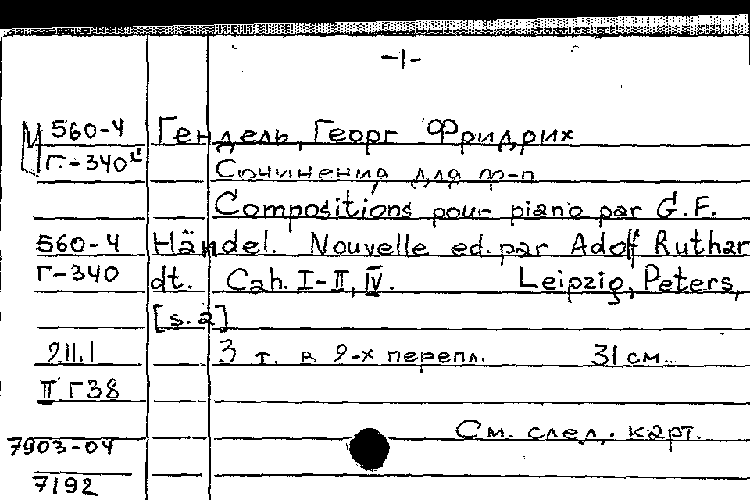 -1-
560-4 Гендель, Георг Фридрих
Г-340 Сочинения для ф-п
Compositions pour piano par G.F.
560-4 Händel. Nouvelle ed. par Adolf Ruthar
Г-340 dt. Cah. I-II, IV. Leipzig, Peters,
[s.a]
211.1 3 т. в 2-х перепл. 31 см.
II Г38
См. след. карт.
7903-04
7192